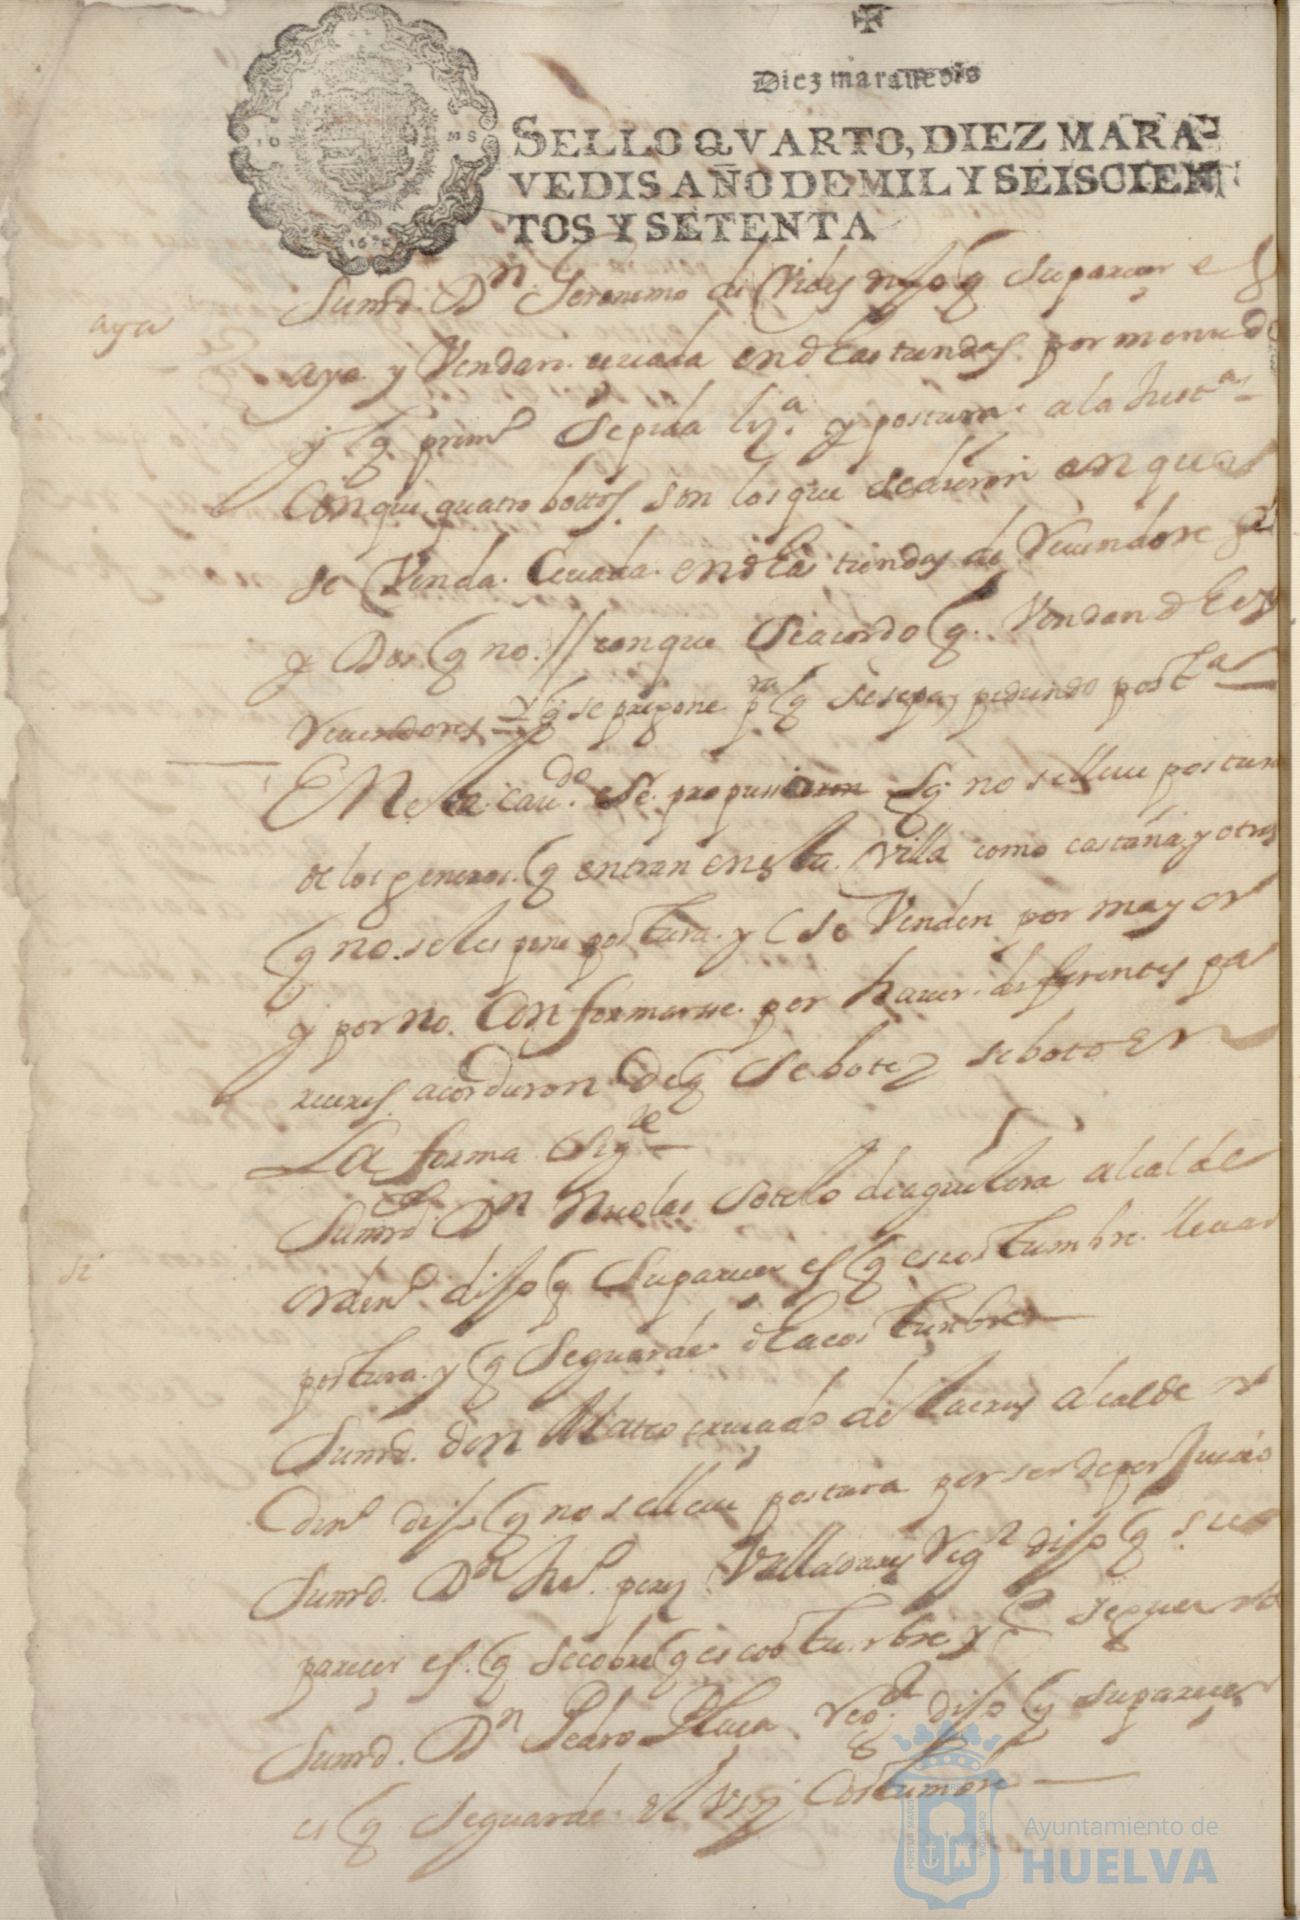 Diez marauedis
SELLO QVARTO, DIEZ MARA-
VEDIS AÑO DE MIL Y SEISCIEN
TOS Y SETENTA
Sumrd. Dn Jeronimo de Vides dijo q su parecer es
aya
aya y Vendan. ceuada en las tiendas por menudo
y q primo se pida liza. y postura a la Justa
Con que quatro bottos son los que dijeron
se Venda. Ceuada. en las tiendas de
y Dos q no // con que se acordo q. Vendan
q se pregone pra q se sepa, pidiendo posta
En este caudo. se propusieron q no se lleue postura
de los generos. q entran en esta Villa como castaña y otros
q no se les pone postura. y se Venden por mayor
y por no. Conformarse. por hauer diferentes pa
receres acordaron de q se bote y se boto En
La forma sigte
Sumrd Dn Nicolas Sotelo de aguilera alcalde
si
ordino dijo q su parecer es q es costumbre. lleuar
postura. y q se guarde la costumbre
Sumrd. don Mateo alcalde or
dino dijo q no se lleue postura por ser de perjuicio
Sumrd. Dn perez Valladares Regor dijo q su
parecer es. q se cobre q es costumbre y se guarde
Sumrd. Dn Pedro Regor dijo q su parecer
es q se guarde el Vso y Costumbre
PORTUS MARIS
CUSTODIA
Ayuntamiento de
HUELVA